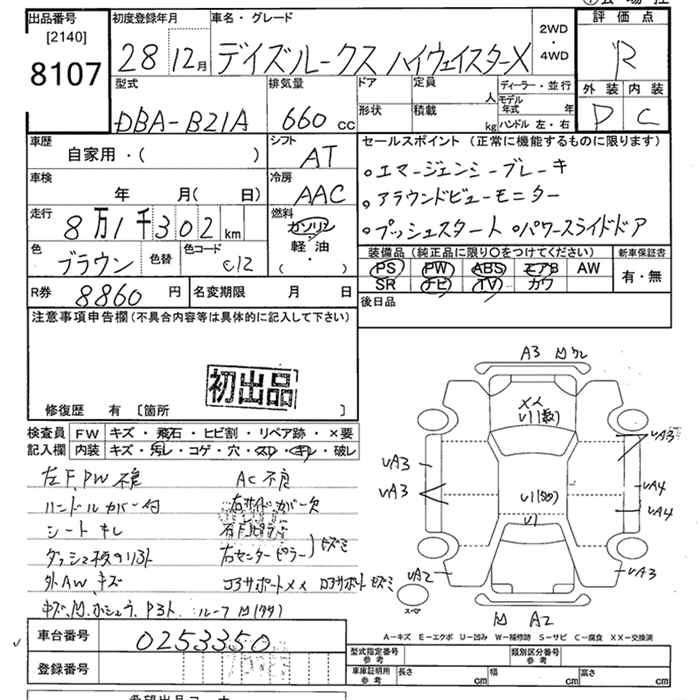 出品番号
[2140]
8107
初度登録年月
28 12月
車名・グレード
デイズルークス ハイウェイスターX
2WD
・
4WD
評価点
R
外装 内装
D C
型式
DBA-B21A
排気量
660 cc
ドア
形状
定員
人
積載
kg
ディーラー・並行
モデル年式 年
ハンドル 左・右
車歴
自家用・( )
シフト
AT
車検
年 月( 日)
冷房
AAC
走行
8万1千302 km
燃料
ガソリン
軽・油
( ・ )
色
ブラウン
色替
色コード
C12
R券
8860円
名変期限 月 日
セールスポイント (正常に機能するものに限ります)
・エマージェンシーブレーキ
・アラウンドビューモニター
・プッシュスタート ・パワースライドドア
装備品 (純正品に限り○をつけてください)
PS PW ABS エアB AW
SR ナビ TV カワ
新車保証書
有・無
後日品
注意事項申告欄(不具合内容等は具体的に記入して下さい)
初出品
修復歴 有 [箇所 ]
検査員記入欄
FW キズ・飛石・ヒビ割・リペア跡・×要
内装 キズ・汚レ・コゲ・穴・スレ・キレ・破レ
左F.PW不良 AC不良
ハンドルカバー付 右サイドカバー欠
シートキレ
右センターピラー
外AWキズ
A3
XX
U1(数)
UA3
UA3
U1
UA3
UA4
UA4
UA2
UA3
スペア
A2
A-キズ E-エクボ U-凹み W-補修跡 S-サビ C-腐食 XX-交換済
車台番号
0253350
登録番号
型式指定番号
参考
類別区分番号
参考
車庫証明用
参考
長さ cm
幅 cm
高さ cm